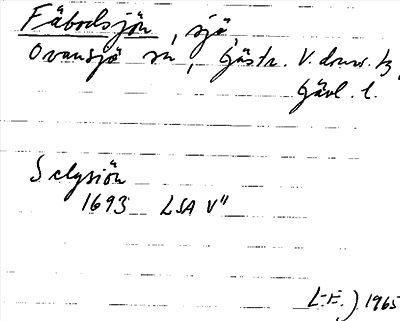 Fäbodsjön, sjö,
Ovansjö sn, Gästr. V. doms.
Gävl. l.
Selgsiön
1693 LSA V"
1965